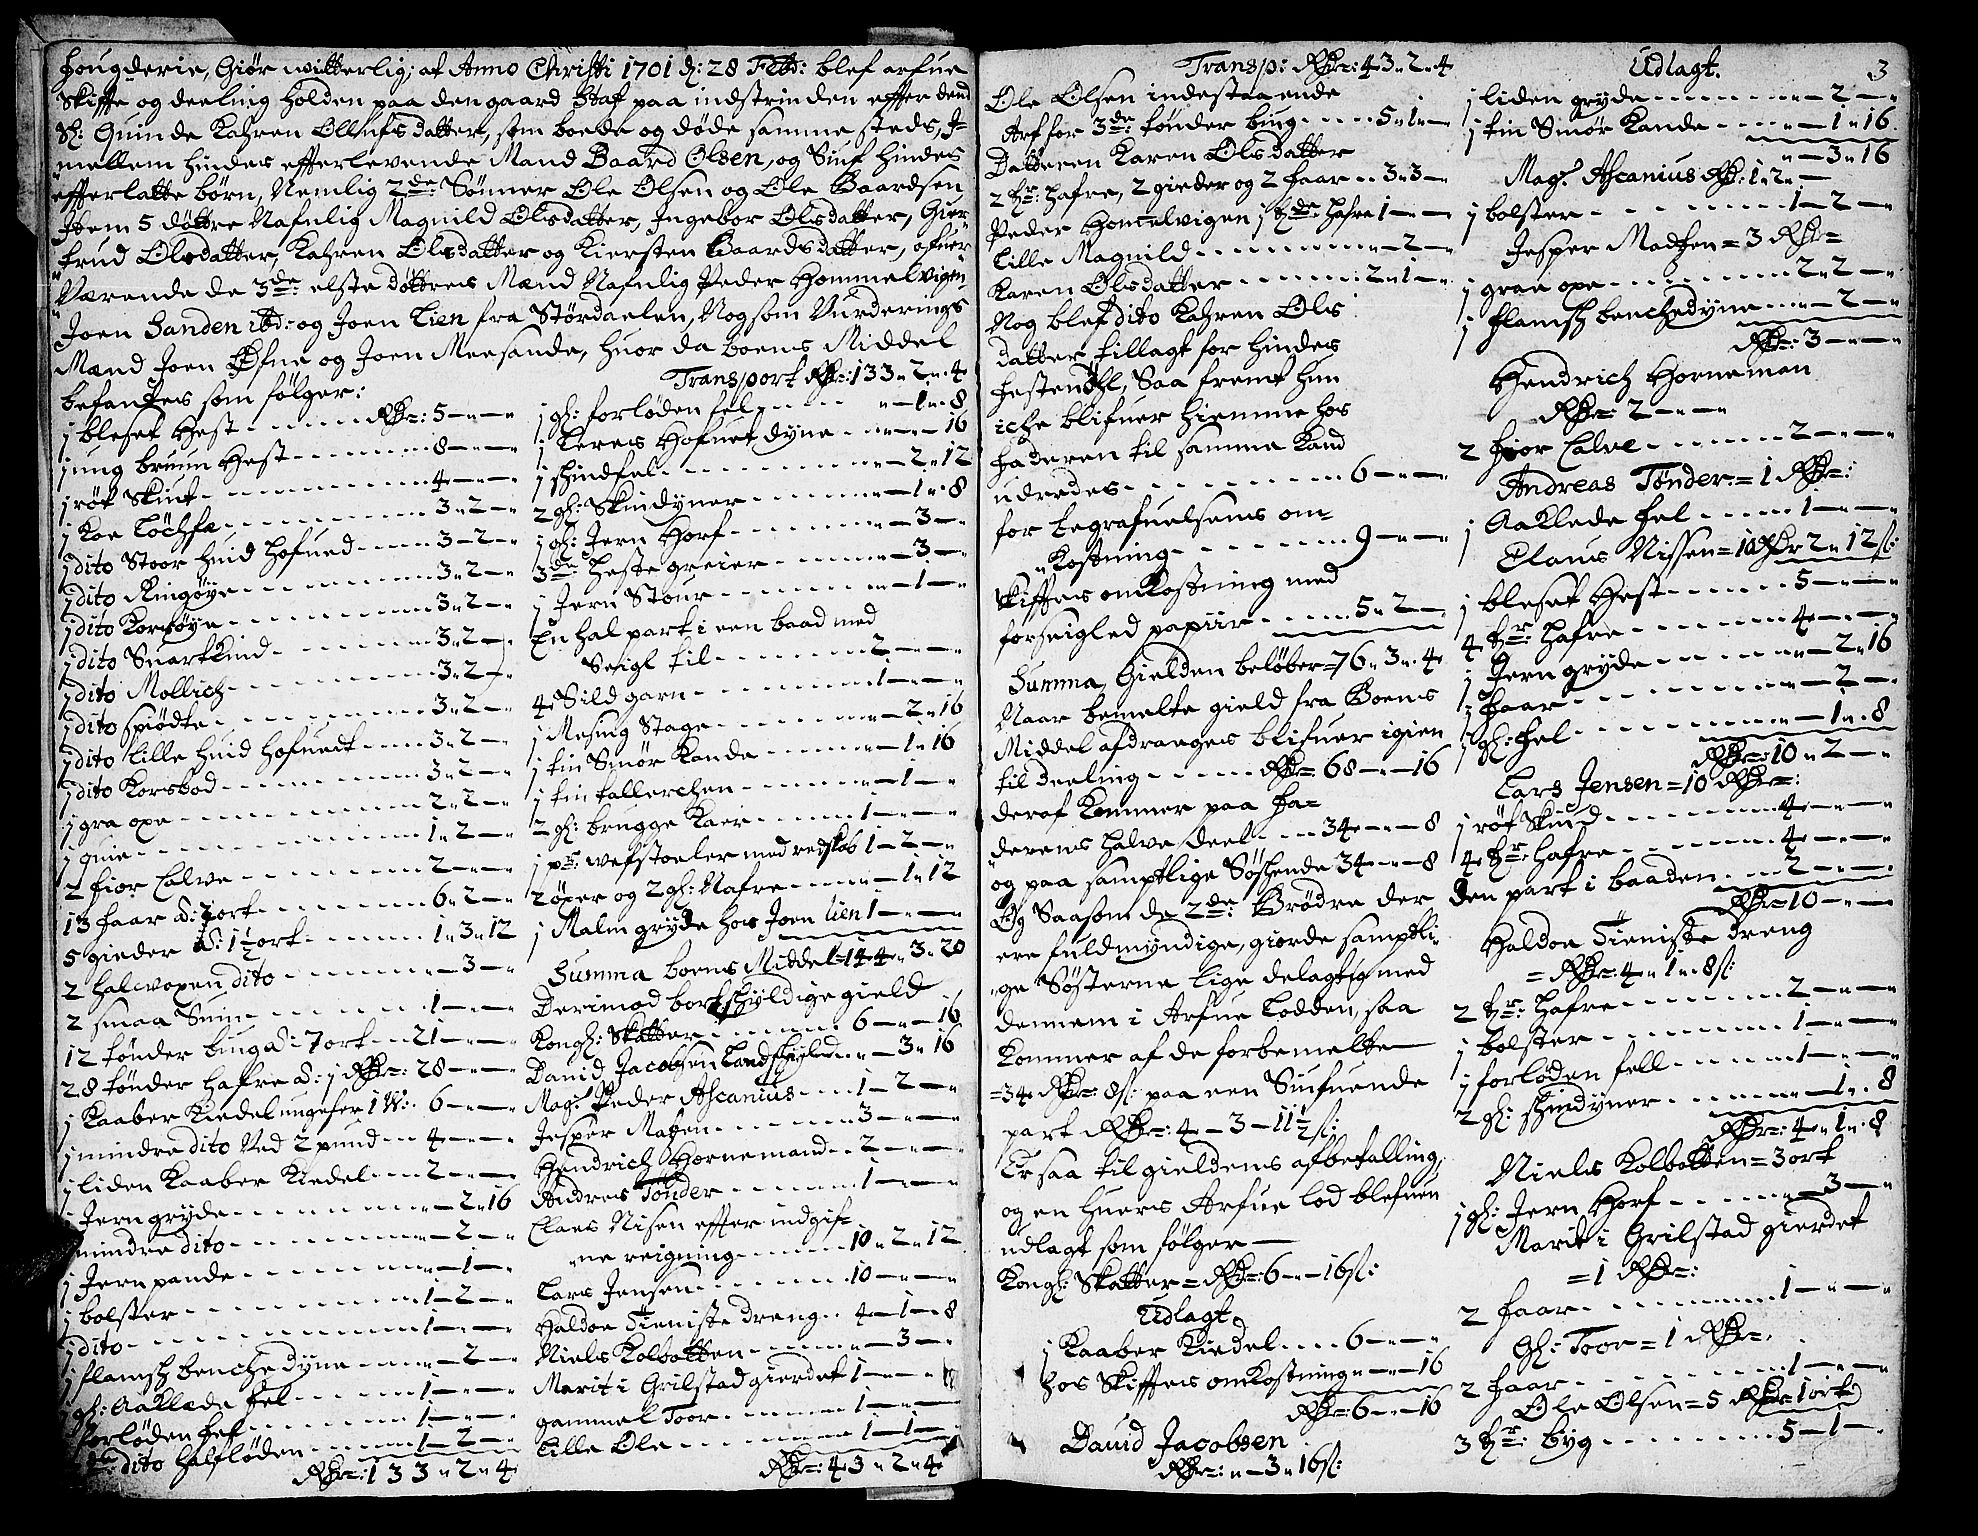 fougderie, Giør witterlig, at Anno Christi 1701 d: 28 Febr: blef arfue
Skifte og deeling holden paa den gaard Staf paa indstrinden effter dend
Sl: Quinde Kahren Ollufsdatter, som boede og døde samme steds, I-
mellem hindes effterlevende Mand Baard Olsen, og Siuf hindes
effterlatte børn, Nemlig 2de Sønner Ole Olsen og Ole Baardsen
Item 5 døttre Nafnlig Magnild Olsdatter, Ingebor Olsdatter, Giør-
trud Olsdatter, Kahren Olsdatter og Kiersten Baardsdatter, ofuer
Værende de 3de elste døttres Mænd Nafnlig Peder Hommelvigen
Joen Sanden ibd: og Joen Lien fra Størdaelen, Nog som Vurderings
Mænd Joen Øfne og Joen Meesande, huor da boens Middel
befantes som følger:
j bleset Hest - - - Rdr: 5 - " - "
j ung bruun Hest - - - 8 - " - "
j røt Skiut - - - 4 - " - "
j Koe Løchfæ - - - 3 " 2 - "
j dito Stoor huid hofued - - - 3 - 2 - "
j dito Ringøye - - - 3 " 2 - "
j dito Korsøye - - - 3 " 2 - "
j dito Snarkkind - - - 3 " 2 - "
j dito Mollich - - - 3 " 2 - "
j dito spiødte - - - 3 " 2 - "
j dito lille huid hofuedt - - - 3 " 2 - "
j dito Korsbod - - - 3 " 2 - "
j gra oxe - - - 2 " 2 - "
j quie - - - 1 " 2 - "
2 fior Calve - - - 2 - " - "
13 faar a: 2 ort - - - 6 " 2 - "
5 gieder a: 1½ ort - - - 1 " 3 " 12
2 halwoxen dito - - - " - 3 - "
2 smaa Suin - - - 1 - " - "
12 tønder bug a: 7 ort - - 21 - " - "
28 tønder hafre a: j Rdr: 28 - " - "
j Kaaber Kiedel ungefer 1 W: 6 - " - "
j mindre dito Ved 2 pund - - 4 - " - "
j liden Kaaber Kiedel - - - 2 - " - "
j Jern gryde - - - " - 2 " 16
j mindre dito - - - " - 2 - "
j Jern pande - - - " - 1 - "
j bolster - - - 1 - 2 - "
j dito - - - 1 - " - "
j flamsk benchedyne - - - " - 2 - "
j gl: Aaklæde fel - - - 1 - " - "
forløden fel - - - 1 - " - "
dito halfløden - - - 1 - 2 - "
Rdr: 133 " 2 " 4
Transport Rdr: 133 " 2 " 4
j gl: forløden fel - - - " - 1 " 8
j Lerets Hofuet dyne - - - " - " - 16
j skindfel - - - " - 2 " 12
2 gl: Skindyner - - - " - 1 " 8
j gl: Jern Horf - - - " - 3 - "
3de heste greier - - - " - 3 - "
j Jern Stour - - - " - 1 - "
En hal part i een baad med
Seigl til - - - 2 - " - "
4 Sild garn - - - 1 - " - "
j Mesing Stage - - - " - 2 " 16
j tin Smør Kande - - - " - 1 " 16
j tin tallerchen - - - " - 1 - "
2 gl: brugge Kaer - - - 1 - " - "
j pr: wefstoeler med redskab 1 - 2 - "
2 øxer og 2 gl: Nafre - - - " - 1 " 12
j Malm gryde hos Joen Lien 1 - " - "
Summa boens Middel = 144 " 3 " 20
Derimod bortskyldige gield
Kongl: Skatter - - - 6 - " - 16
Dauid Jacobsen Landskyld - - " - 3 " 16
Magr. Peder Ascanius - - - 1 - 2 - "
Jesper Matzen - - - 3 - " - "
Hendrich Hornemand - - 2 - " - "
Andres Tønder - - - 1 - " - "
Claes Nisen effter indgif-
ne reigning - - - 10 " 2 " 12
Lars Jensen - - - 10 - " - "
Haldoe Tieniste dreng - - 4 - 1 - 8
Niels Kolbotten - - - " - 3 - "
Marit i Grilstad gierdet 1 - " - "
gammel Toor - - - 1 - " - "
Lille Ole - - - 1 - 1 - "
Rdr: 43 " 2 " 4
Transp: Rdr: 43 " 2 " 4
Ole Olsen indestaaende
Arf for 3de tønder bug - - - 5 " 1 - "
Datteren Karen Olsdatter
2 tr: hafre, 2 gieder og 2 faar - - 3 " 3 - "
Peder Homelvigen j tde hafre 1 - " - "
Lille Magnild - - - " - 2 - "
Karen Olsdatter - - - 2 " 1 - "
Nog blef dito Kahren Ols
datter tillagt for hindes
festensøhl, Saa fremt hun
iche blifuer hiemme hos
faderen til samme kand
udredes - - - 6 - " - "
for begrafuelsens om-
kostning - - - 9 - " - "
Skifftes omkostning med
forseigled papiir - - - 5 " 2 - "
Summa Gielden beløber = 76 " 3 " 4
Naar bemelte gield fra Boens
Middel afdrages blifuer igien
til deeling - - - Rdr = 68 - " - 16
deraf kommer paa fa-
derens halve deel - - - 34 - " - 8
og paa samptlige Søskende 34 - " - 8
Og Saasom de 2de Brødre der
ere fuldmyndige, giorde samptli-
ge Søsterne lige delagtig med
dennem i Arfue Lodden, saa
kommer af de forbemelte
= 34 Rdr 8 s: paa een Siufuende
part Rdr: 4 - 3 - 11½ s:
Er saa til gieldens afbetalling,
og en huers Arfue lod blefuen
udlagt som følger
Kongl: Skatter = Rdr: 6 - " - 16 s:
Udlagt.
j Kaaber Kiedel - - - 6 - " - "
hos Skifftes omkostning " - " - 16
Rdr = 6 - " - 16
David Jacobsen
Rdr: " - 3 " 16 s:
Udlagt. 3
j liden gryde - - - " - 2 - "
j tin Smør Kande - - - " - 1 " 16
" - 3 " 16
Magr. Ascanius Rdr: 1 " 2 " -
j bolster - - - 1 - 2 - "
Jesper Madtzen = 3 Rdr =
j graa oxe - - - 2 " 2 - "
j flamsk benchedyne - - - " - 2 - "
Rdr: 3 - " - "
Hendrich Horneman
Rdr: 2 - " - "
2 fior Calve - - - 2 - " - "
Andreas Tønder = 1 Rdr:
j Aaklæde fel - - - 1 - " - "
Claus Nissen = 10 Rdr 2 " 12 s:
j bleset Hest - - - 5 - " - "
4 tr: hafre - - - 4 - " - "
j Jern gryde - - - " - 2 " 16
j faar - - - " - 2 - "
j gl: fel - - - " - 1 " 8
Rdr: 10 " 2 - "
Lars Jensen = 10 Rdr:
j røt Skiud - - - 4 - " - "
4 tr: hafre - - - 4 - " - "
den part i baaden - - - 2 - " - "
Rdr = 10 - " - "
Haldoe Tieniste dreng
= Rdr: 4 " 1 " 8 s:
2 tr: hafre - - - 2 - " - "
j bolster - - - 1 - " - "
j forløden fell - - - 1 - " - "
2 gl: skindyner - - - " - 1 " 8
Rdr: 4 " 1 " 8
Niels Kolbotten = 3 ort
j gl: Jern Horf - - - " - 3 - "
Marit i Grilstad gierdet
= 1 Rdr:
2 faar - - - 1 - " - "
Gl: Toor = 1 Rdr
2 faar - - - 1 - " - "
Ole Olsen = 5 Rdr 1 ort
3 tr: byg - - - 5 - 1 - "